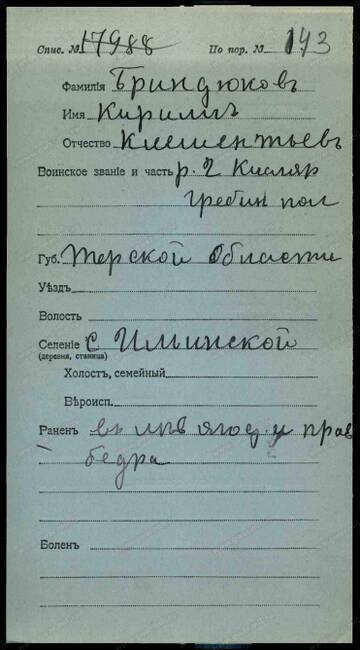 Спис. № 17988 По пор. № 193
Фамилія Бриндюковъ
Имя Кириллъ
Отчество Клементьевъ
Воинское званіе и часть р. 2 Кизляр
Гребен пол
Губ. Терской Области
Уѣздъ
Волость
Селеніе С Ильинской
(деревня, станица)
Холостъ, семейный
Вѣроисп.
Раненъ въ лѣв ягод. и прав
бедра
Боленъ